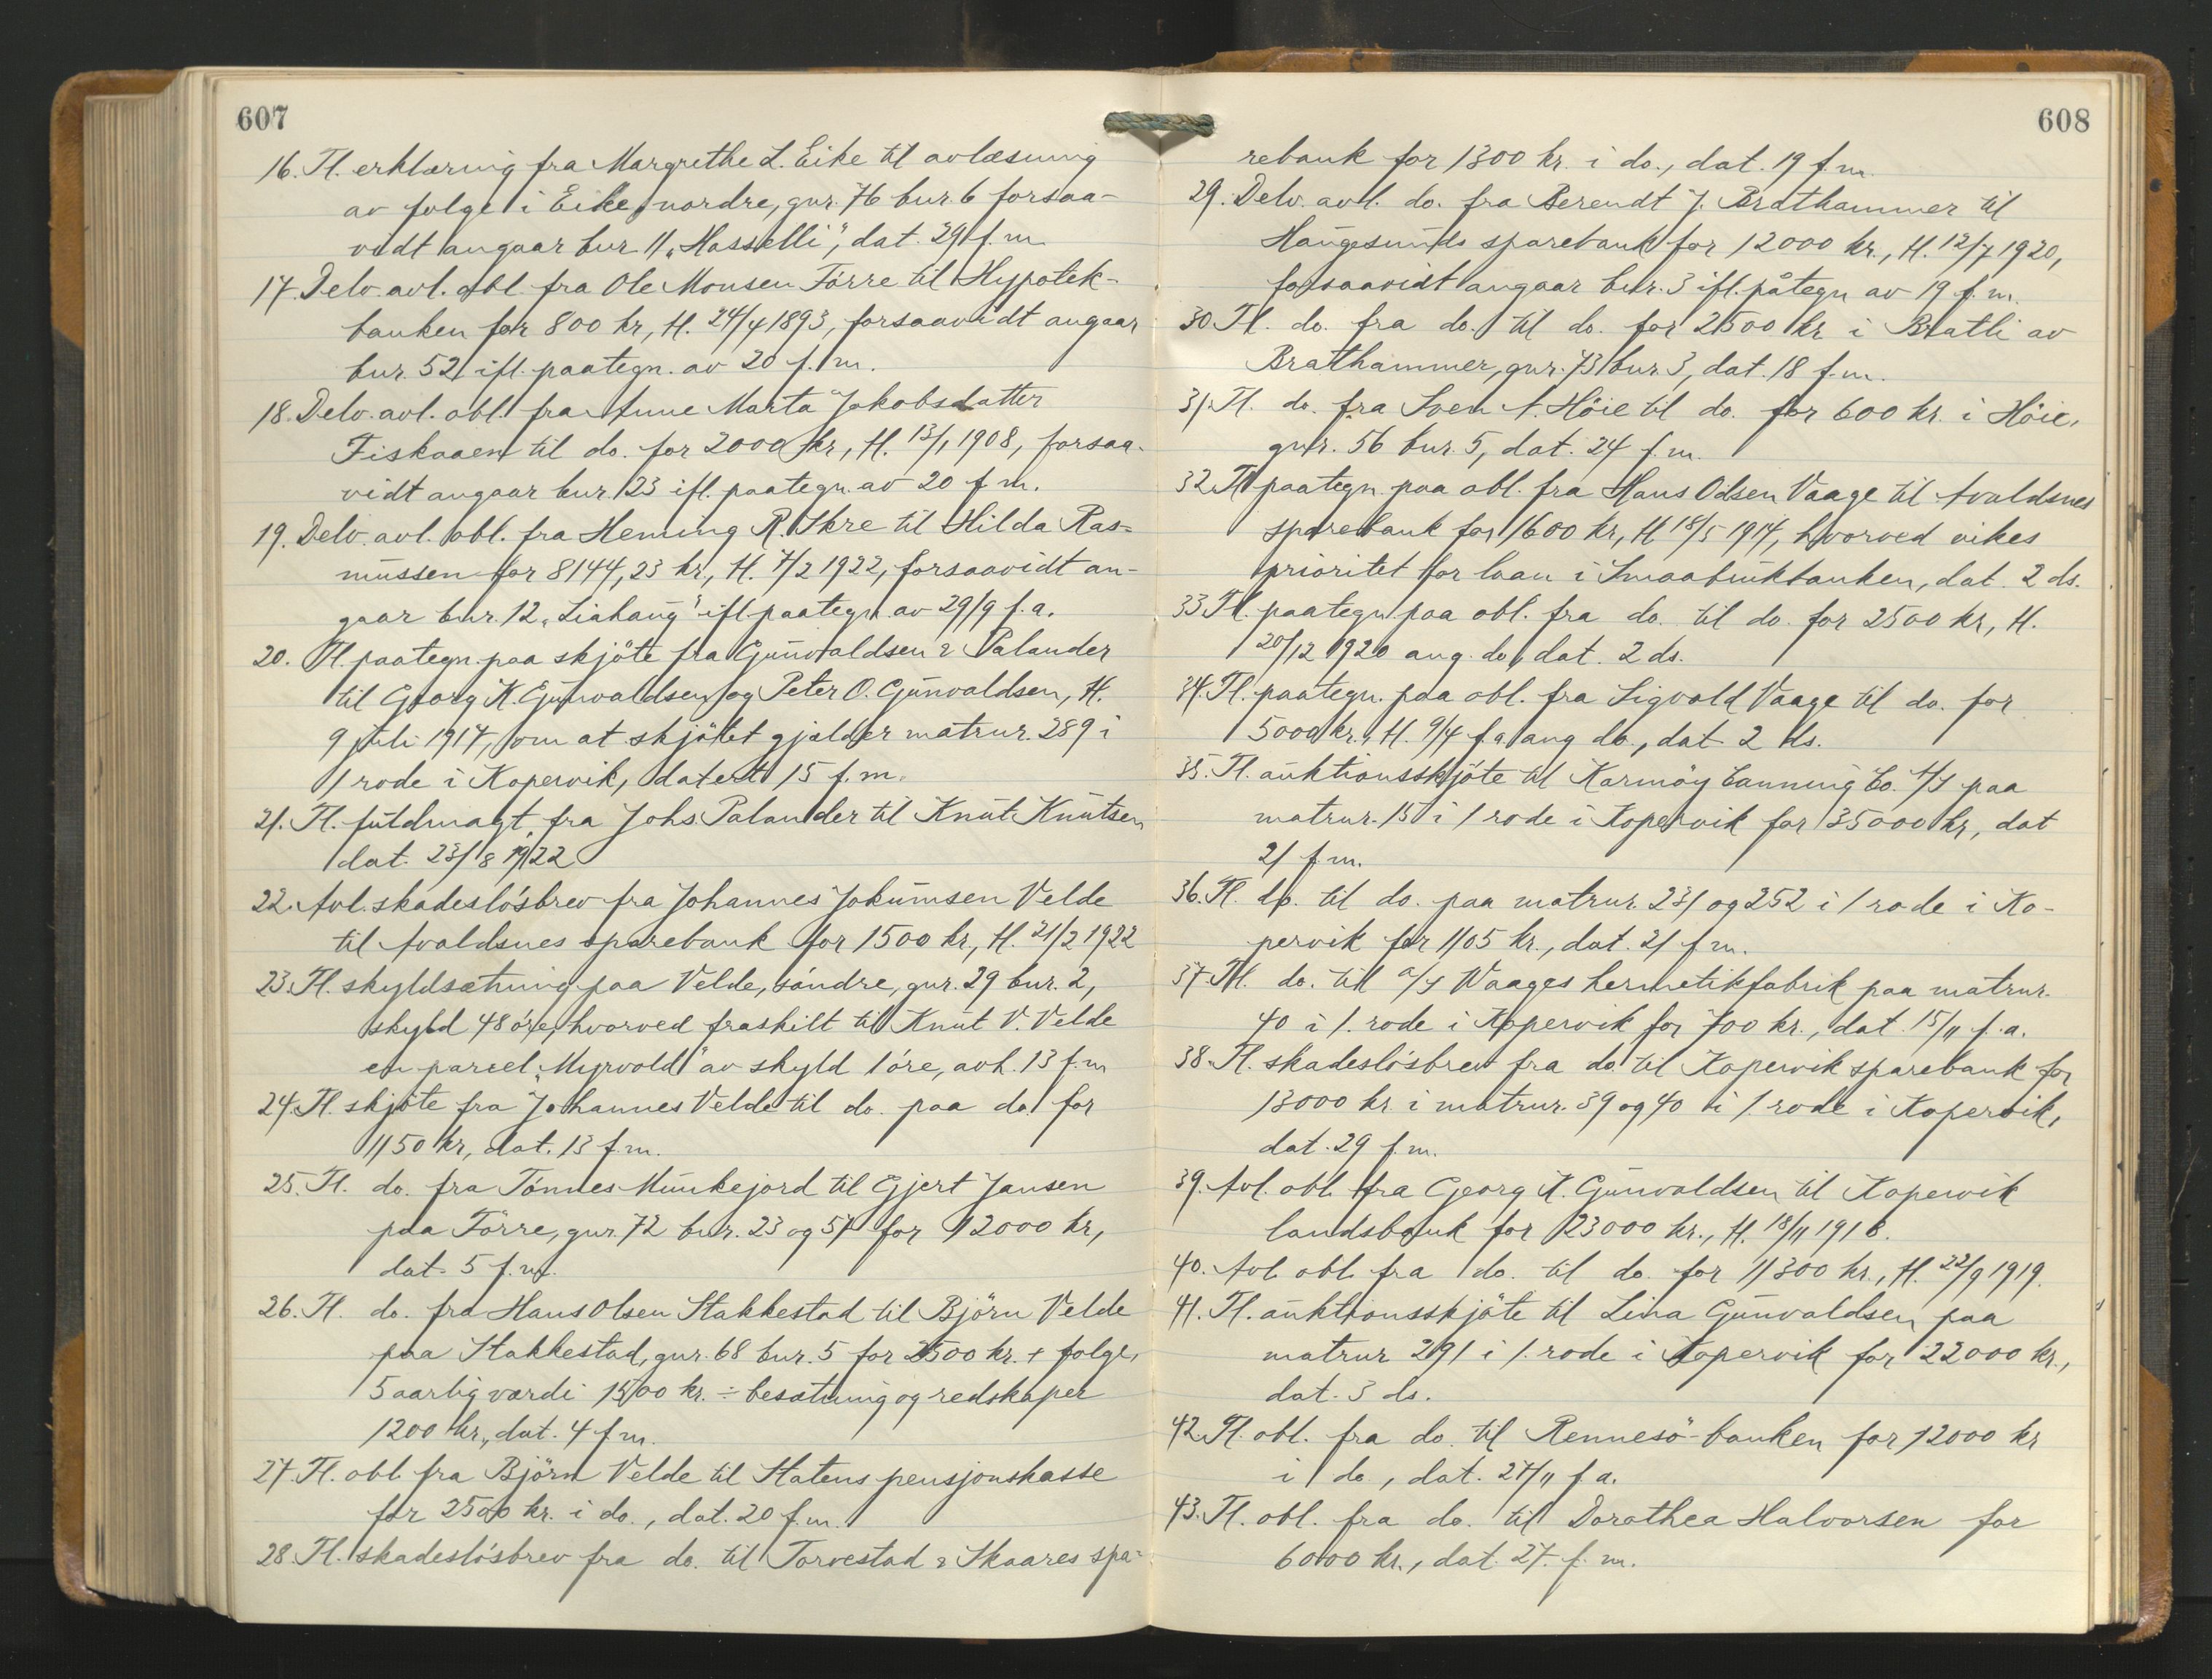 607
16. Tl. erklæring fra Margrethe L. Eike til avlæsning
av folge i Eike, nordre, gnr. 76 bnr. 6 forsaa-
vidt angaar bnr 11 „Hasselli", dat. 29 f.m.
17. Delv. avl. obl. fra Ole Monsen Förre til Hypotek-
banken for 800 kr, tl. 24/4 1893, forsaavidt angaar
bnr. 52 ifl. paategn. av 20 f.m.
18. Delv. avl. obl. fra Anne Marta Jakobsdatter
Fiskaaen til do. for 2000 kr, tl. 13/1 1908, forsaa-
vidt angaar bnr. 23 ifl. paategn. av 20 f.m.
19. Delv. avl. obl. fra Heming R. Skre til Hilda Ras-
mussen for 8144,23 kr, tl. 7/2 1922, forsaavidt an-
gaar bnr. 12 „Liahaug" ifl. paategn. av 29/9 f.a.
20. Tl. paategn. paa skjöte fra Gunvaldsen & Palander
til Georg K. Gunvaldsen og Peter O. Gunvaldsen, tl.
9 juli 1917, om at skjötet gjælder matrnr. 289 i
1 rode i Kopervik, datert 15 f.m.
21. Tl. fuldmagt fra Johs Palander til Knut Knutsen
dat. 23/8 1922
22. Avl. skadeslösbrev fra Johannes Jokumsen Velde
til Avaldsnes sparebank for 1500 kr., tl. 21/2 1922
23. Tl. skyldsætning paa Velde, söndre, gnr. 29 bnr. 2,
skyld 48 öre, hvorved fraskilt til Knut V. Velde
en parcel „Myrvold" av skyld 1 öre, avh. 13 f.m
24. Tl. skjöte fra Johannes Velde til do. paa do. for
1150 kr, dat. 13 f.m.
25. Tl. do. fra Tönnes Munkejord til Gjert Jansen
paa Förre, gnr. 72 bnr. 23 og 57 for 12000 kr,
dat. 5 f.m.
26. Tl. do. fra Hans Olsen Stakkestad til Björn Velde
paa Stakkestad, gnr. 68 bnr. 5 for 2500 kr. + folge,
5 aarlig værdi 1500 kr. ÷ besætning og redskaper
1200 kr., dat. 4 f.m.
27. Tl. obl. fra Björn Velde til Statens pensjonskasse
for 2500 kr. i do., dat. 20 f.m.
28. Tl. skadeslösbrev fra do. til Torvestad & Skaares spa-
608
rebank for 1300 kr. i do., dat. 19 f.m.
29. Delv. avl. do. fra Berendt J. Brathammer til
Haugesunds sparebank for 12000 kr., tl. 12/7 1920,
forsaavidt angaar bnr. 3 ifl. påtegn av 19 f.m.
30. Tl. do. fra do. til do. for 2500 kr i Bratli av
Brathammer, gnr. 73 bnr. 3, dat. 18 f.m.
31. Tl. do. fra Sven A. Höie til do. for 600 kr. i Höie,
gnr. 56 bnr. 5, dat. 24 f.m.
32. Tl. paategn. paa obl. fra Hans Odsen Vaage til Avaldsnes
sparebank for 1600 kr, tl 18/5 1914, hvorved vikes
prioritet for laan i Smaabrukbanken, dat. 2 ds.
33. Tl. paategn. paa obl. fra do. til do. for 2500 kr, tl.
20/12 1920 ang. do, dat. 2 ds.
34. Tl. paategn. paa obl. fra Sigvald Vaage til do. for
5000 kr., tl. 9/4 f.a ang do., dat 2 ds.
35. Tl. auktionsskjöte til Karmöy Canning Co. A/S paa
matrnr. 15 i 1 rode i Kopervik for 35000 kr, dat
21 f.m.
36. Tl. do. til do. paa matrnr. 231 og 252 i 1 rode i Ko-
pervik for 1105 kr., dat. 21 f.m.
37. Tl. do. til A/S Waages hermetikfabrik paa matrnr.
40 i 1. rode i Kopervik for 700 kr., dat. 15/11 f.a.
38. Tl. skadeslösbrev fra do. til Kopervik sparebank for
13000 kr. i matrnr. 39 og 40 i 1. rode i Kopervik,
dat. 29 f.m.
39. Avl. obl. fra Georg K. Gunvaldsen til Kopervik
landsbank for 23000 kr., tl. 18/11 1918.
40. Avl. obl. fra do. til do. for 11300 kr., tl. 22/9 1919.
41. Tl. auktionsskjöte til Lina Gunvaldsen paa
matrnr 291 i 1. rode i Kopervik for 22000 kr.,
dat. 3 ds.
42. Tl. obl. fra do. til Rennesö-banken for 12000 kr
i do, dat. 27/11 f.a.
43. Tl. obl. fra do. til Dorothea Halvorsen for
6000 kr., dat. 27. f.m.